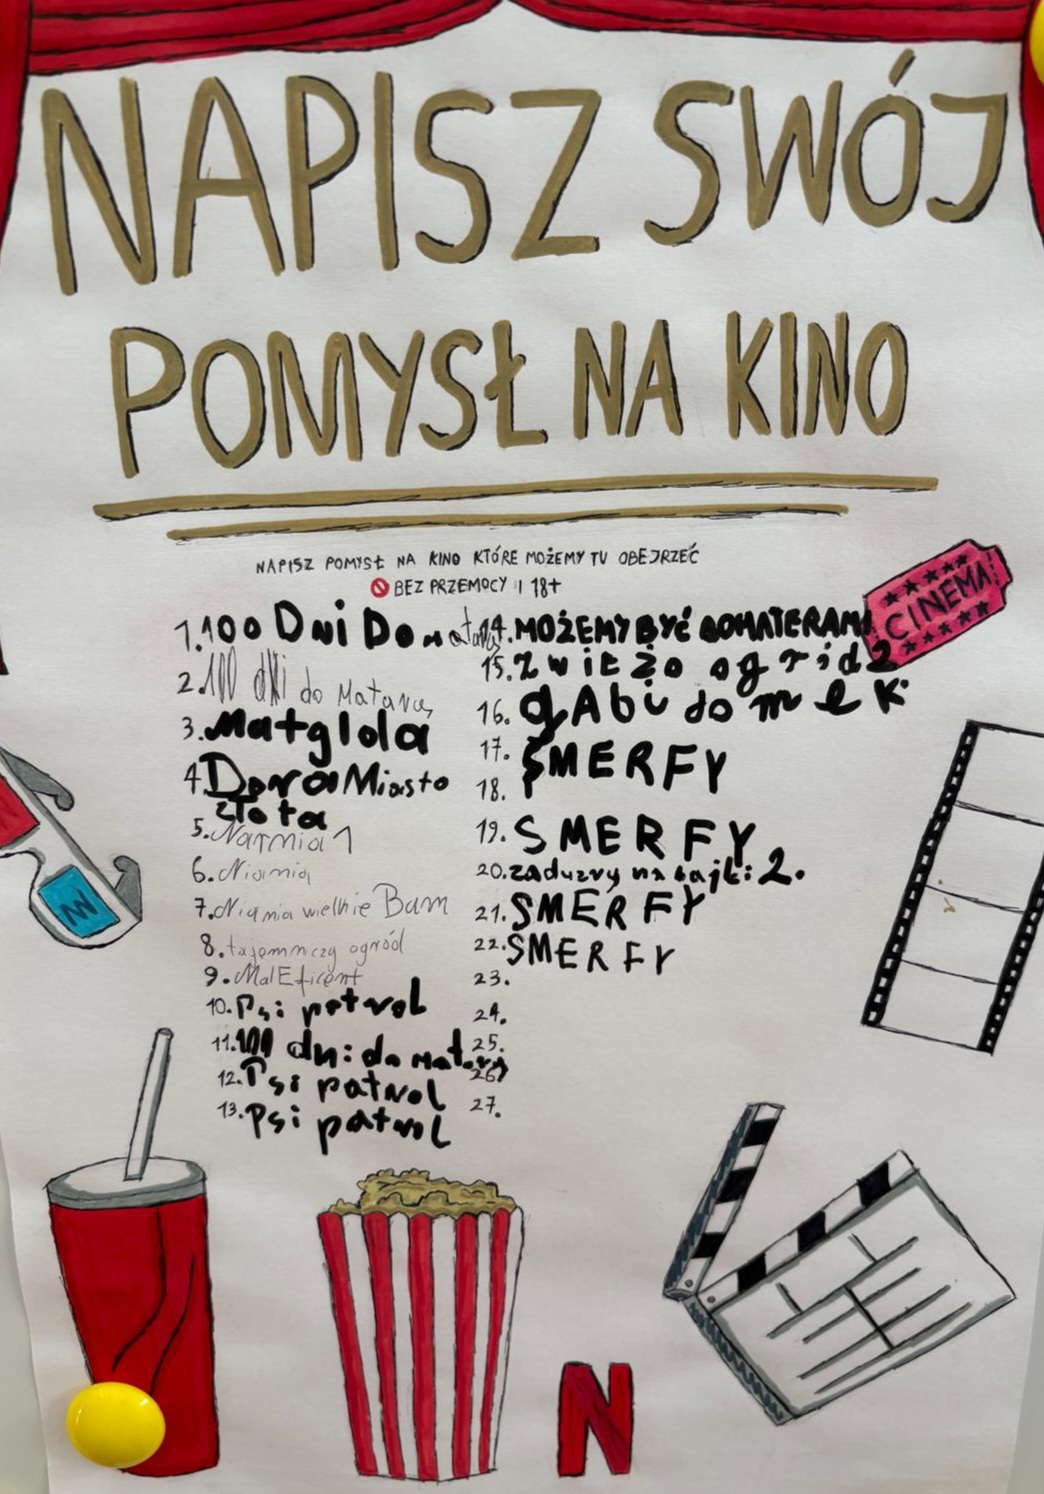 NAPISZ SWÓJ
POMYSŁ NA KINO
NAPISZ POMYSŁ NA KINO KTÓRE MOŻEMY TU OBEJRZEĆ
BEZ PRZEMOCY I 18+
1.100 Dni Do matury
2.100 dni do Matury
3.Matglola
4.Dora Miasto
złota
5.Narnia 1
6.Niania
7.Niania wielkie Bum
8.tajemniczy ogród
9.MalEficent
10.Psi patrol
11.100 dni do matury
12.Psi patrol
13.Psi patrol
14.MOŻEMY BYĆ BOHATERAMI
15.Zwieżogród 2
16.gAbi domek
17.SMERFY
18.
19.SMERFY
20.zaduzvy na bajki 2.
21.SMERFY
22.SMERFY
23.
24.
25.
26.
27.
CINEMA
N